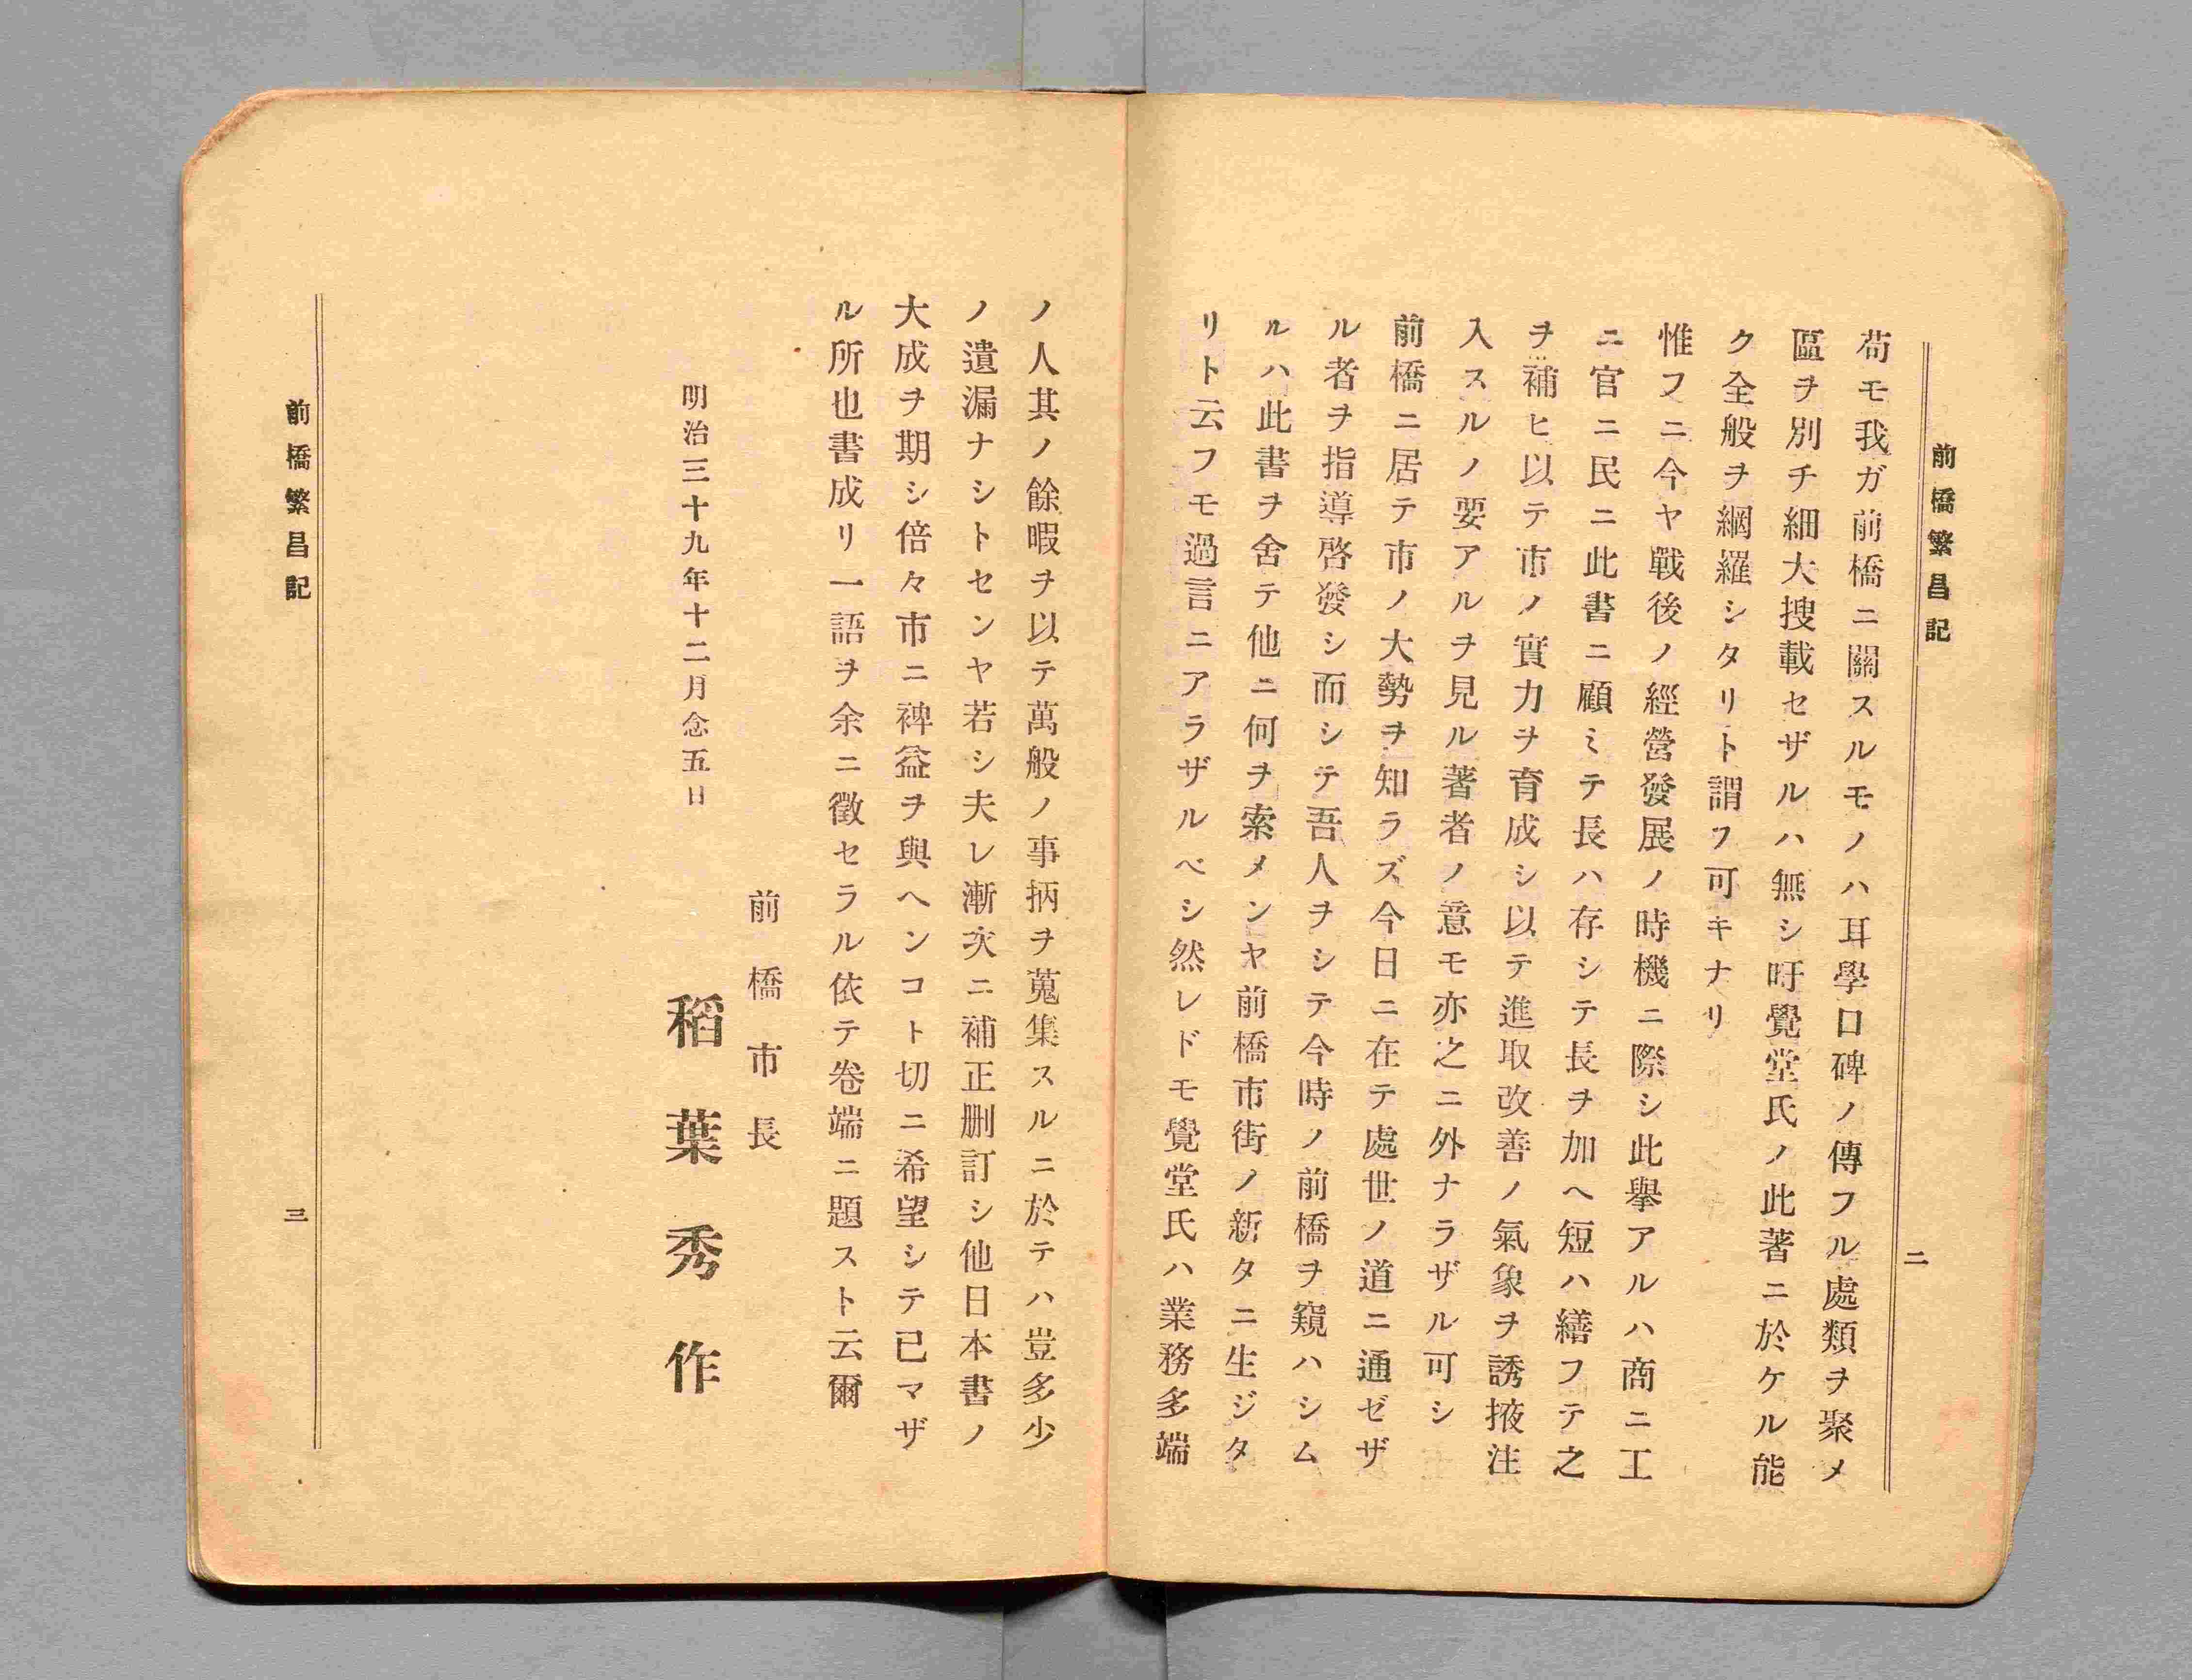 前橋繁昌記
二
苟モ我ガ前橋ニ關スルモノハ耳學口碑ノ傳フル處類ヲ聚メ
區ヲ別チ細大捜載セザルハ無シ吁覺堂氏ノ此著ニ於ケル能
ク全般ヲ網羅シタリト謂フ可キナリ
惟フニ今ヤ戰後ノ經營發展ノ時機ニ際シ此擧アルハ商ニ工
ニ官ニ民ニ此書ニ顧ミテ長ハ存シテ長ヲ加ヘ短ハ繕フテ之
ヲ補ヒ以テ市ノ實力ヲ育成シ以テ進取改善ノ氣象ヲ誘掖注
入スルノ要アルヲ見ル著者ノ意モ亦之ニ外ナラザル可シ
前橋ニ居テ市ノ大勢ヲ知ラズ今日ニ在テ處世ノ道ニ通ゼザ
ル者ヲ指導啓發シ而シテ吾人ヲシテ今時ノ前橋ヲ窺ハシム
ルハ此書ヲ舍テ他ニ何ヲ索メンヤ前橋市街ノ新タニ生ジタ
リト云フモ過言ニアラザルベシ然レドモ覺堂氏ハ業務多端
ノ人其ノ餘暇ヲ以テ萬般ノ事柄ヲ蒐集スルニ於テハ豈多少
ノ遺漏ナシトセンヤ若シ夫レ漸次ニ補正删訂シ他日本書ノ
大成ヲ期シ倍々市ニ裨益ヲ與ヘンコト切ニ希望シテ已マザ
ル所也書成リ一語ヲ余ニ徵セラル依テ卷端ニ題スト云爾
前橋市長
明治三十九年十二月念五日
稻葉秀作
前橋繁昌記
三